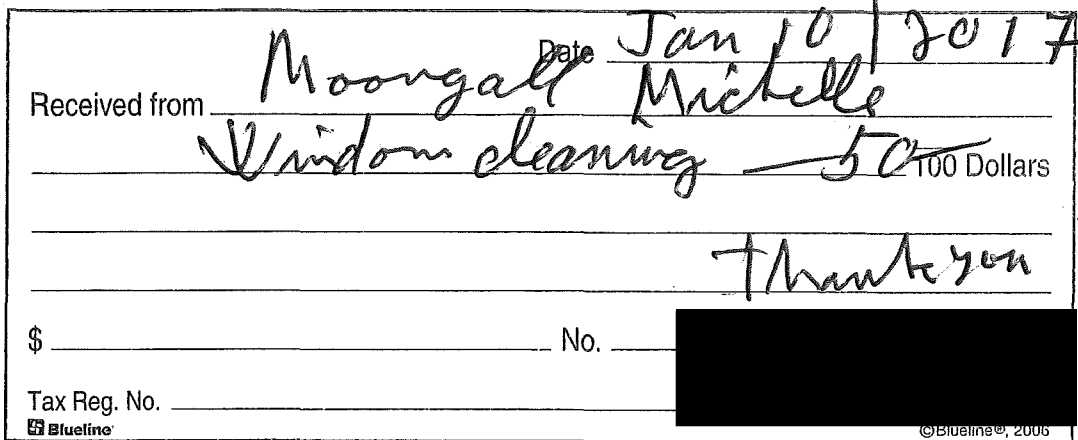 Date Jan 10/2017
Received from Moongall Michelle
Window cleaning — 50 — 100 Dollars
Thank you
$ No.
Tax Reg. No.
Blueline ©Blueline®, 2006